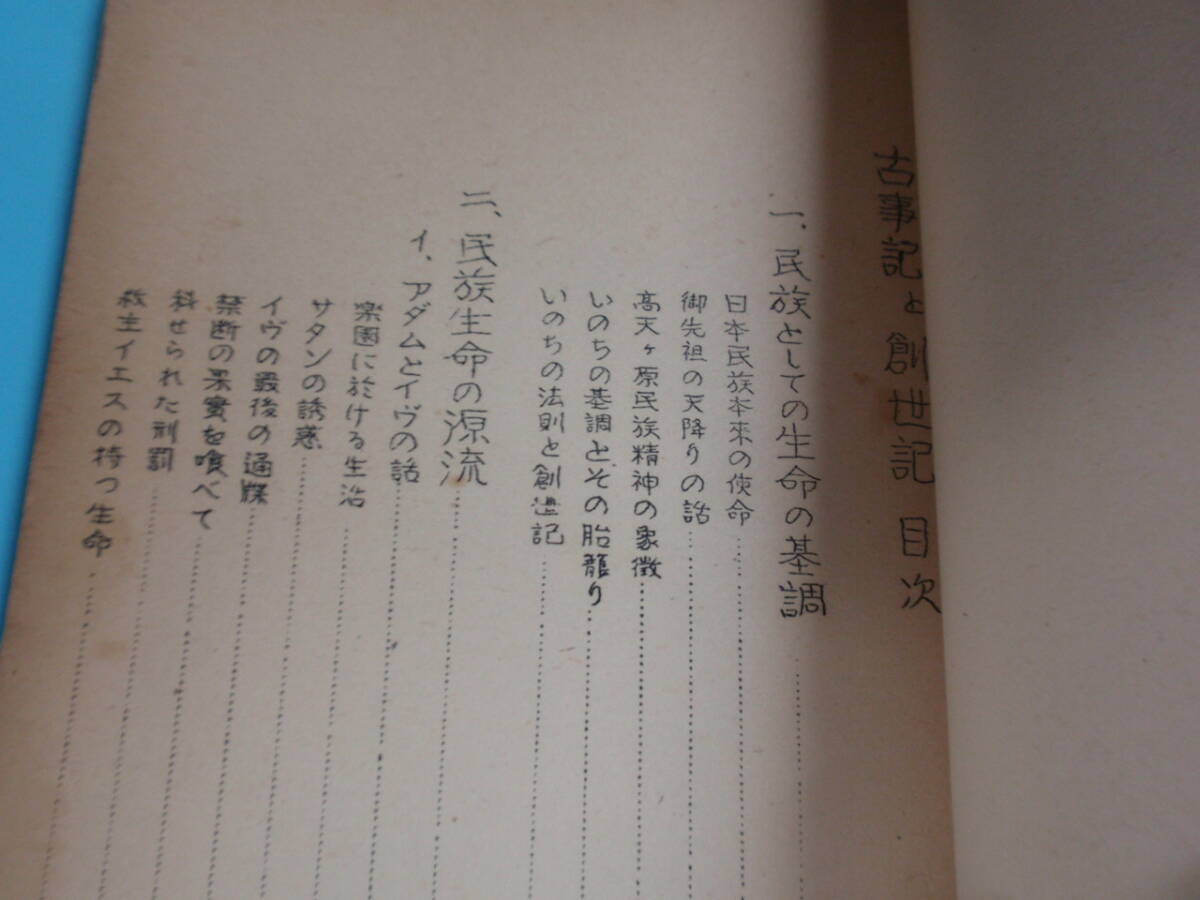 古事記と創世記 目次
一、民族としての生命の基調
日本民族本来の使命
御先祖の天降りの話
高天ヶ原民族精神の象徴
いのちの基調とその胎籠り
いのちの法則と創世記
二、民族生命の源流
イ、アダムとイヴの話
楽園に於ける生活
サタンの誘惑
イヴの最後の通牒
禁断の果實を喰べて
科せられた刑罰
救主イエスの持つ生命